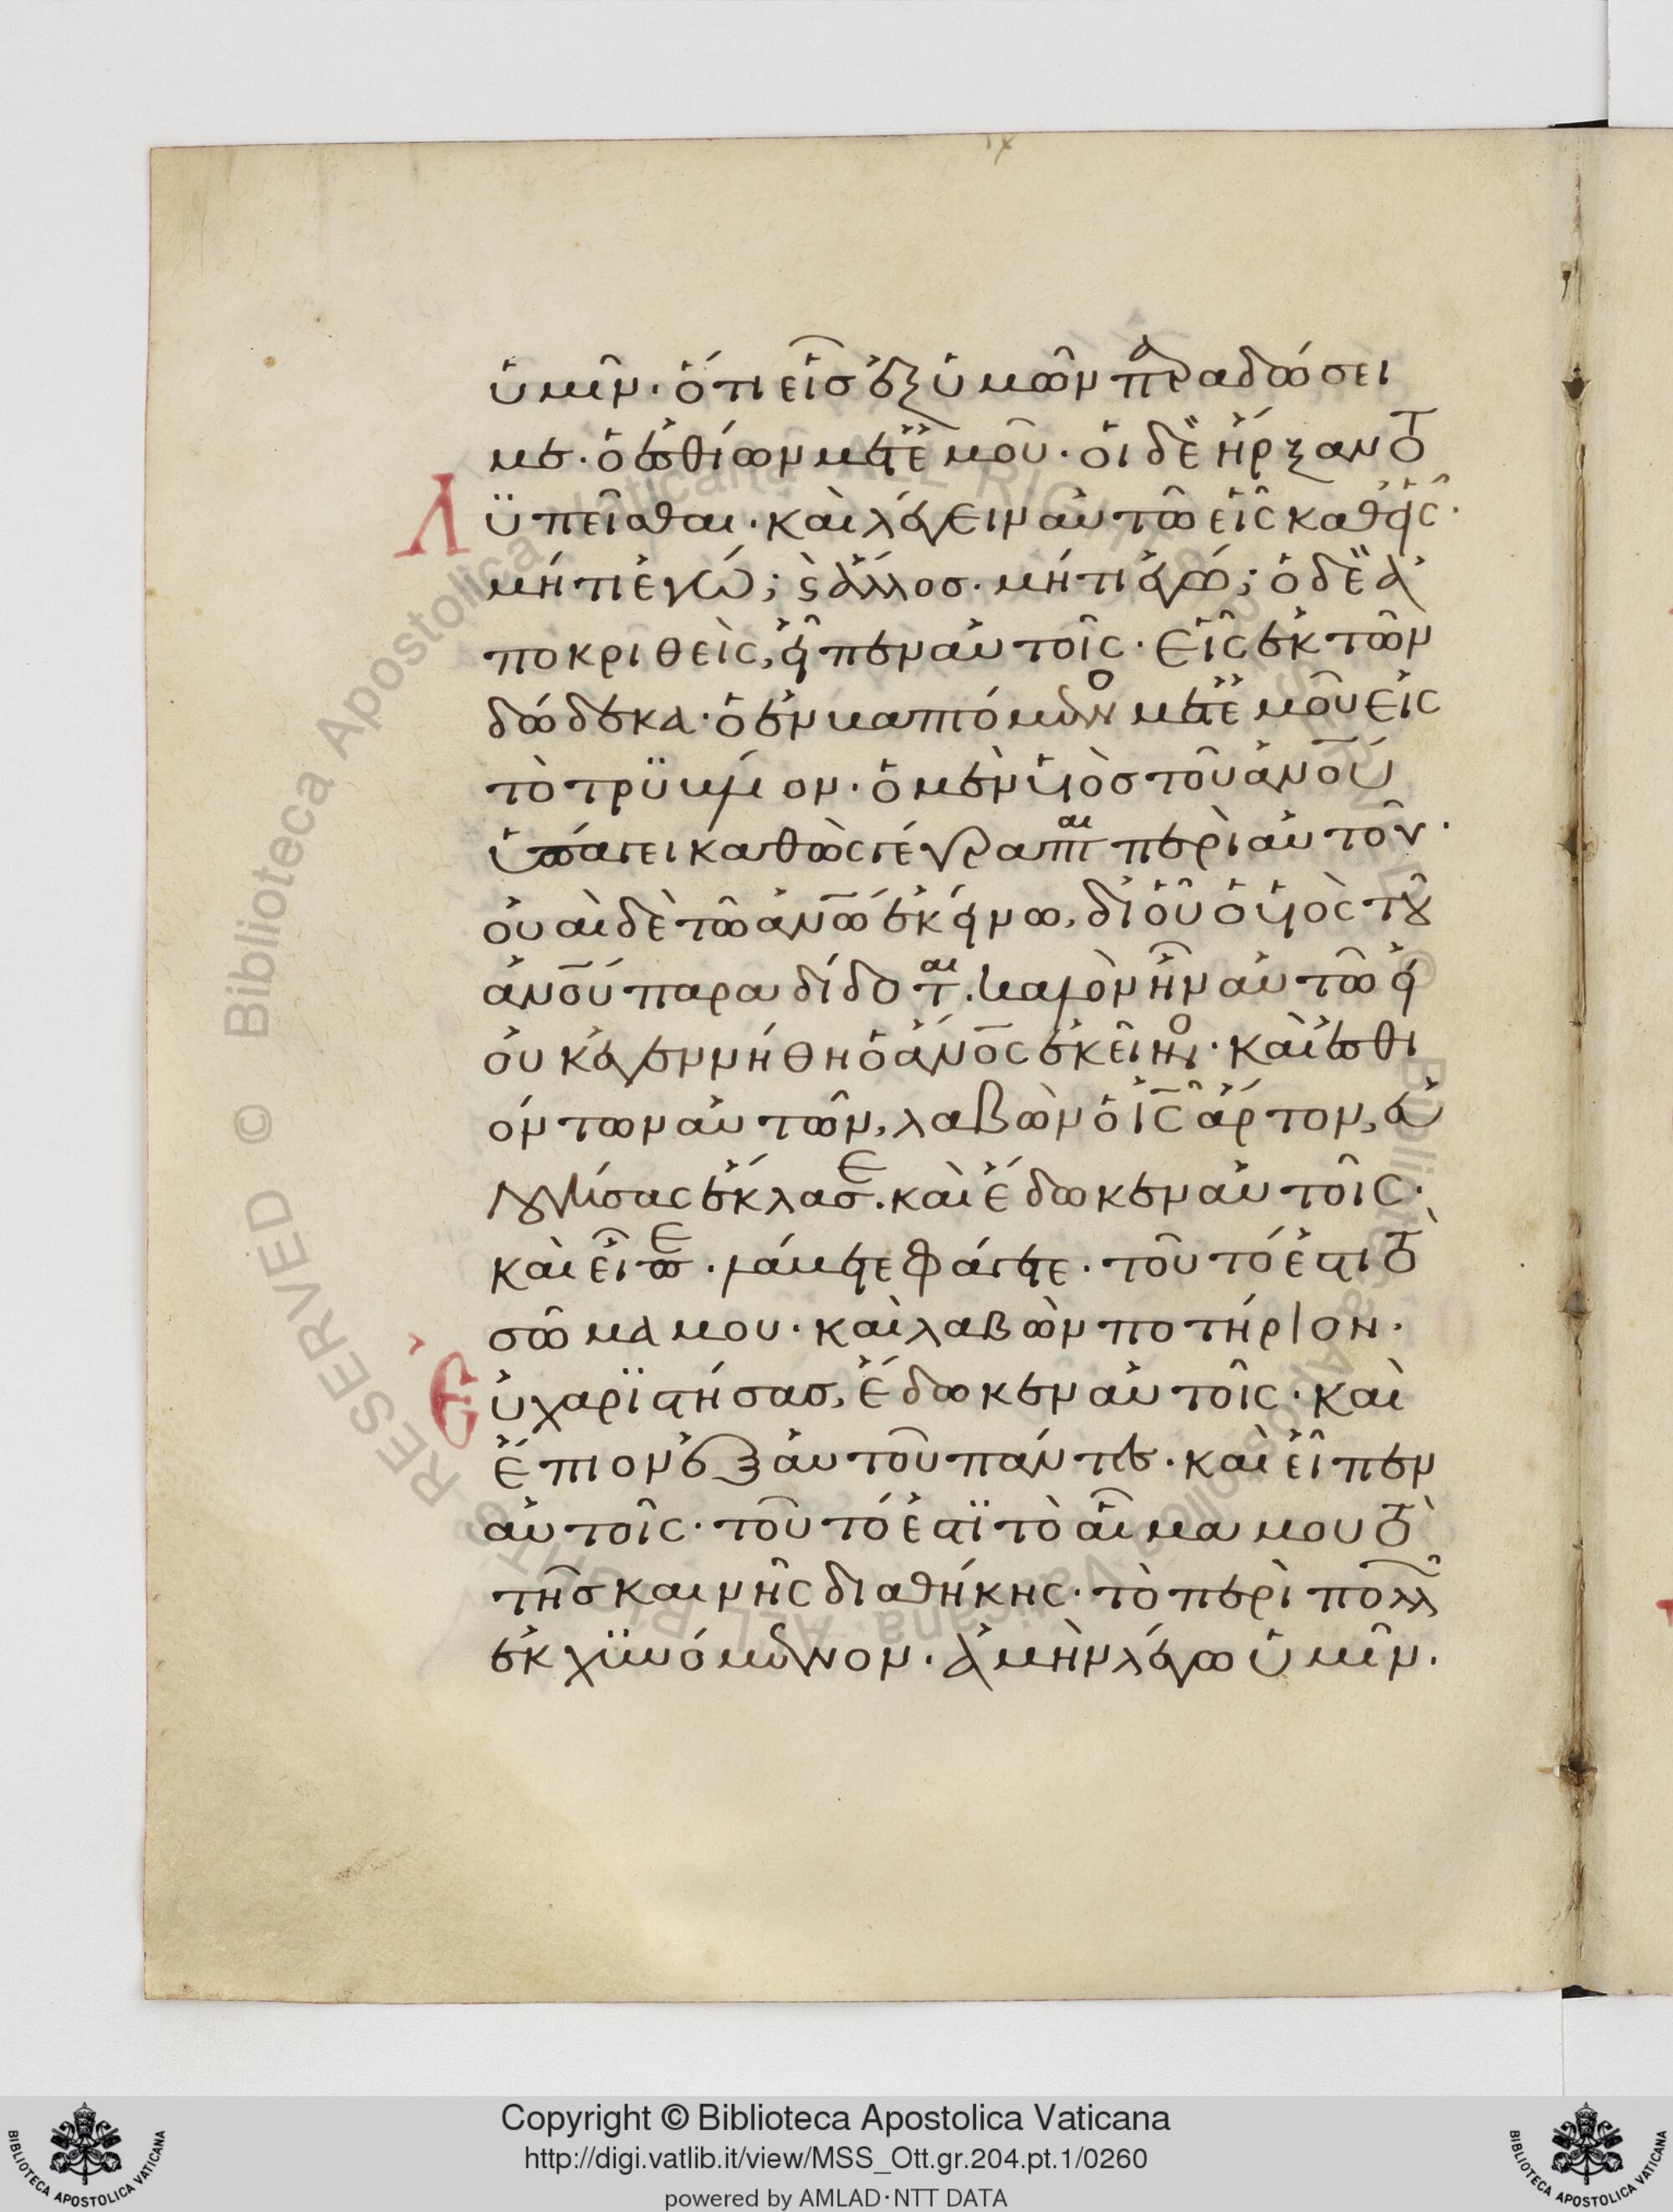 ὑμῖν· ὅτι εἷς ἐξ ὑμῶν παραδώσει
με· ὁ ἐσθίων μετ ἐμοῦ· οἱ δὲ ἤρξαντο
λϋπεῖσθαι· καὶ λέγειν αὐτῶ εἷς καθεῖς·
μή τι ἐγώ; ϛ ἄλλος· μή τι ἐγώ; ὁ δὲ ἀ
ποκριθεὶς, εἶπεν αὐτοῖς· εἷς ἐκ τῶν
δώδεκα· ὁ ἐμβαπτόμενος μετ ἐμοῦ εἰς
τὸ τρϋβλίον· ὁ μὲν υἱὸς τοῦ ἀν̅ου̅
ὑπάγει καθὼς γέγραπται περὶ αὐτοῦ·
οὐαὶ δὲ τῶ ἀν̅ω̅ ἐκείνω, δι οὗ ὁ υἱὸς τοῦ
ἀν̅ου̅ παραδίδοται. καλὸν ἦν αὐτῶ εἰ
οὐκ ἐγεννήθη ὁ ἄν̅ος̅ ἐκεῖνος· καὶ ἐσθι
όντων αὐτῶν, λαβὼν ὁ ι̅ς̅ ἄρτον, εὐ
λογήσας ἔκλασε. καὶ ἔδωκεν αὐτοῖς·
καὶ εἶπε· λάβετε φάγετε· τοῦτό ἐστι τὸ
σῶμα μου· καὶ λαβὼν ποτήριον·
εὐχαρϊστήσας, ἔδωκεν αὐτοῖς· καὶ
ἔπιον ἐξ αὐτοῦ πάντες· καὶ εἶπεν
αὐτοῖς· τοῦτό ἐστϊ τὸ αἷμα μου τὸ
τῆς καινῆς διαθήκης· τὸ περὶ πολλῶν
ἐκχϋνόμενον· ἀμὴν λέγω ὑμῖν·
Copyright © Biblioteca Apostolica Vaticana
http://digi.vatlib.it/view/MSS_Ott.gr.204.pt.1/0260
powered by AMLAD·NTT DATA
BIBLIOTECA APOSTOLICA VATICANA
BIBLIOTECA APOSTOLICA VATICANA